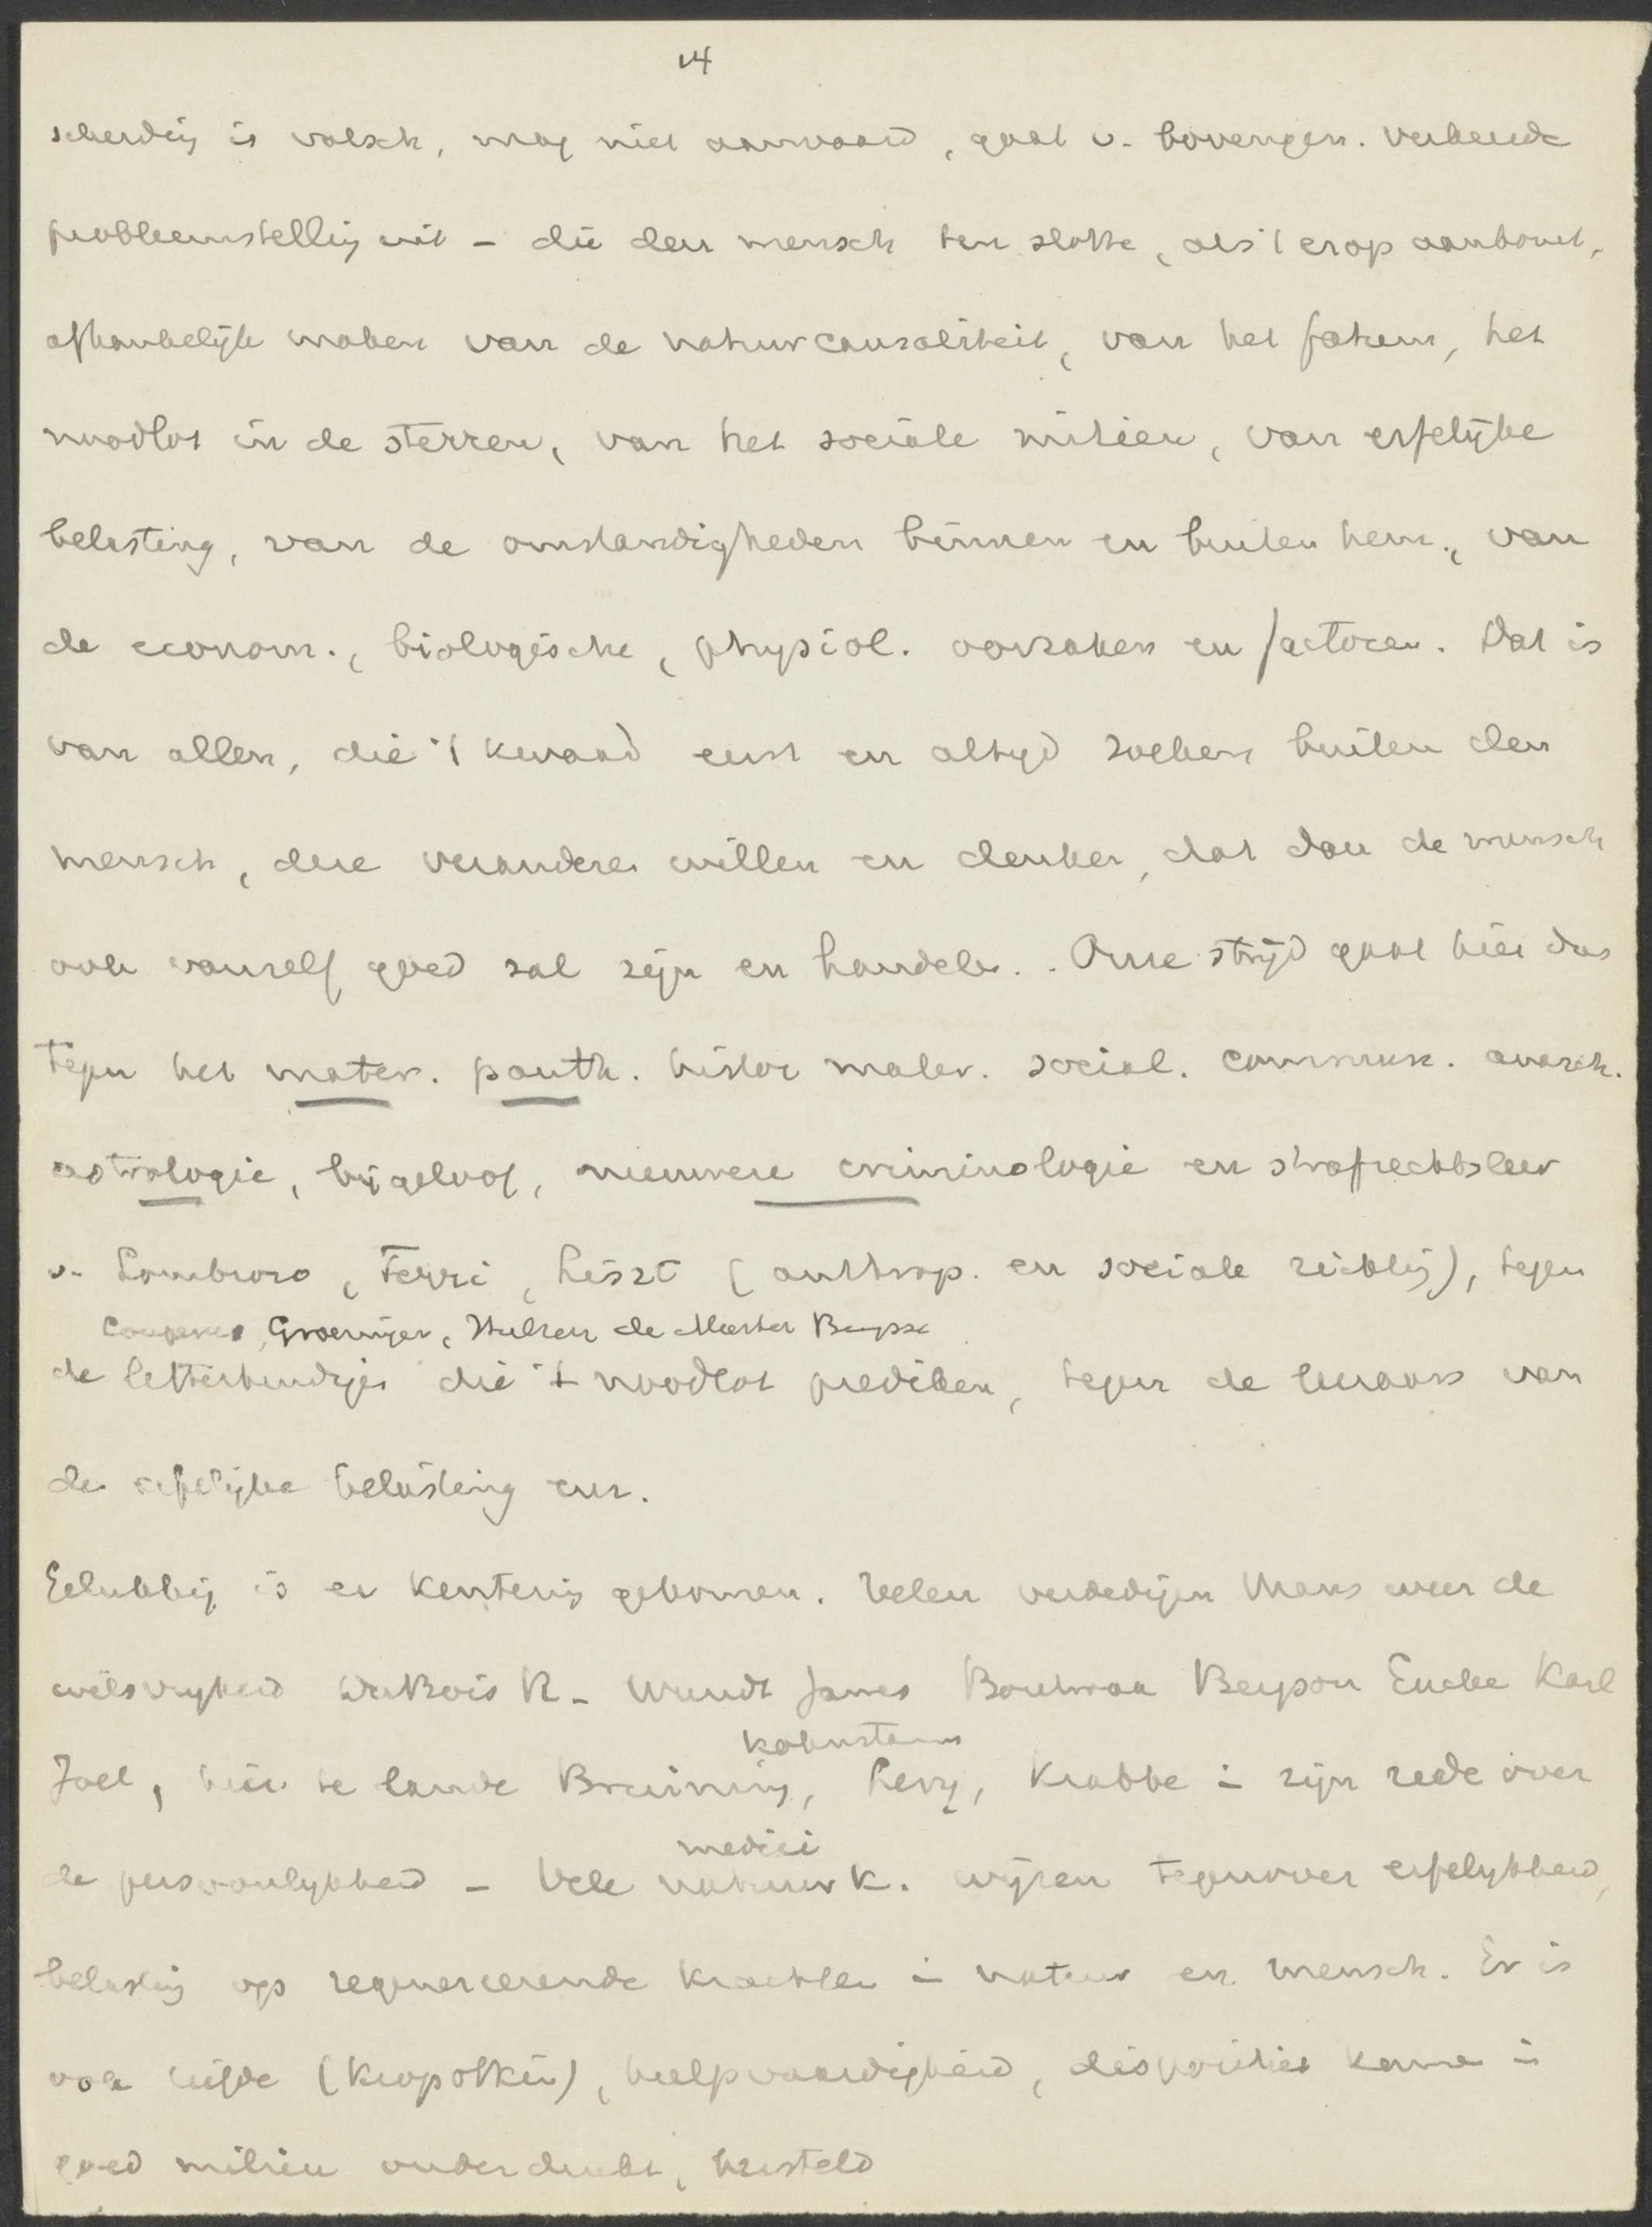 14
scheiding is valsch, mag niet aanvaard, gaat v. bovengen. verkeerde
probleemstelling uit – die den mensch ten slotte, als 't erop aankomt,
afhankelijk maken van de natuurcausaliteit, van het fatum, het
noodlot in de sterren, van het sociale milieu, van erfelijke
belasting, van de omstandigheden binnen en buiten hem, van
de econom., biologische, physiol. oorzaken en factoren. Dat is
van allen, die 't kwaad eerst en altijd zoeken buiten den
mensch, die veranderen willen en denken, dat dan de mensch
ook vanzelf goed zal zijn en handelen. Onze strijd gaat hier dus
tegen het mater. panth. histor mater. social. commun. anarch.
astrologie, bijgeloof, nieuwere criminologie en strafrechtsleer
v. Lombroso, Ferri, Liszt (anthrop. en sociale richting), tegen
Couperus, Groeninger, Hulzen de Meester Buysse
de letterkundigen die 't noodlot prediken, tegen de leeraars van
de erfelijke belasting enz.
Gelukkig is er kentering gekomen. Velen verdedigen thans weer de
wilsvrijheid DuBois R– Wundt James Boutroux Bergson Eucke Karl
Kohnstamm
Joel, hier te lande Bruining, Levy, Krabbe in zijn rede over
medici
de persoonlijkheid – Vele natuurk. wijzen tegenover erfelijkheid,
belasting op regenereerende krachten in natuur en mensch. Er is
ook liefde (Kropotkin), hulpvaardigheid, disposities kunnen in
goed milieu onderdrukt, hersteld